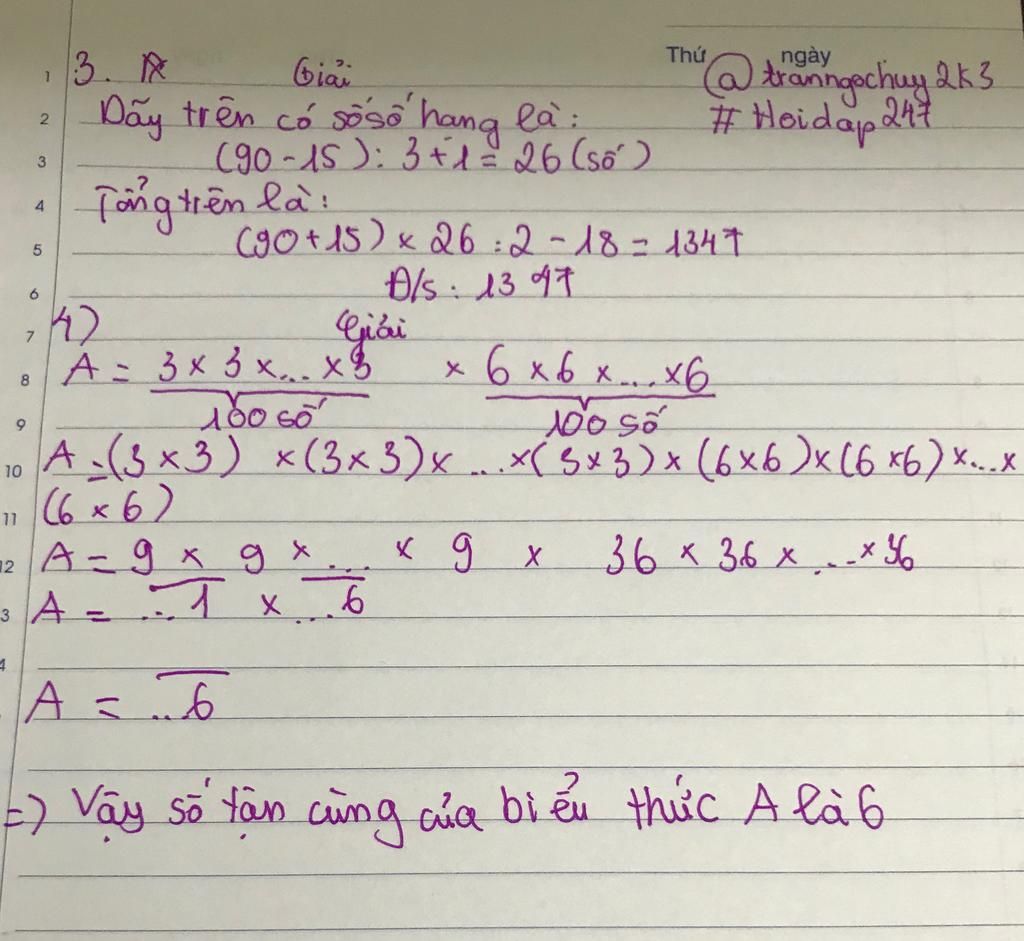 Thứ ngày
3. Giải @tranngochuy2k3
Dãy trên có số số hang là: #Hoidap247
(90 - 15) : 3 + 1 = 26 (số)
Tổng trên là:
(90 + 15) × 26 : 2 - 18 = 1347
Đ/s : 1347
4) Giải
A = 3 × 3 × ... × 3 × 6 × 6 × ... × 6
100 số 100 số
A = (3 × 3) × (3 × 3) × ... × (3 × 3) × (6 × 6) × (6 × 6) × ... ×
(6 × 6)
A = 9 × 9 × ... × 9 × 36 × 36 × ... × 36
A = ...1 × ...6
A = ...6
=) Vậy số tận cùng của biểu thức A là 6
1
2
3
4
5
6
7
8
9
10
11
12
3
4